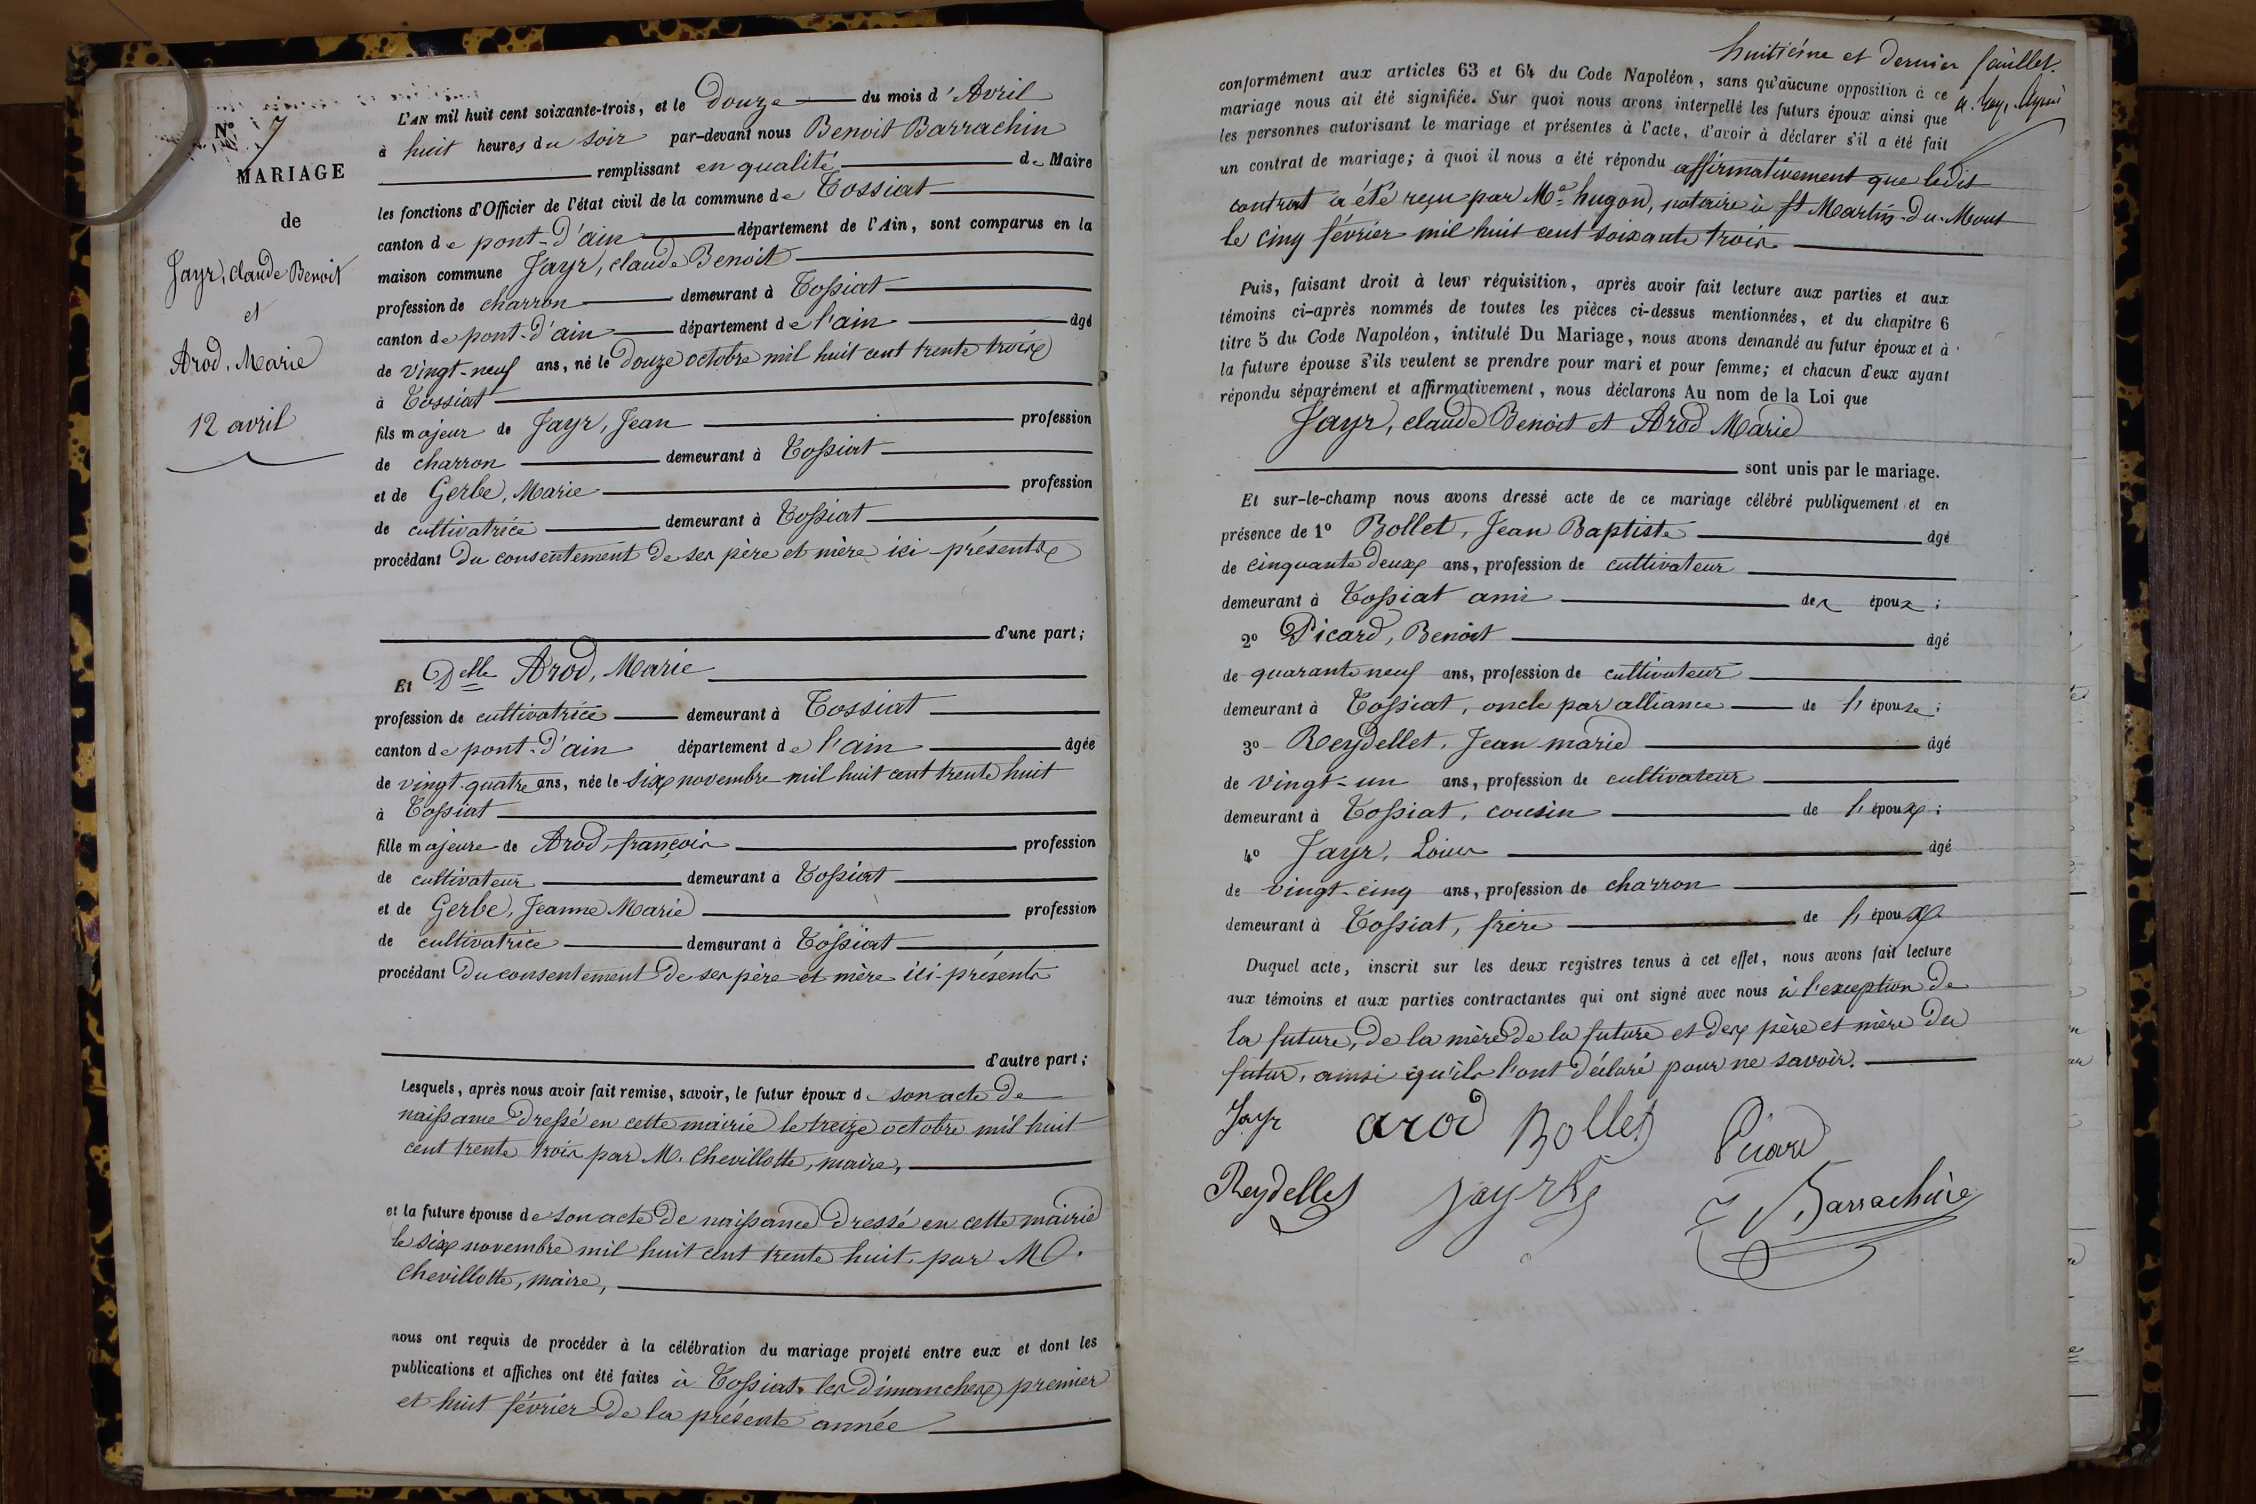 N° 7
MARIAGE
de
Jayr, claude Benoit
et
Arod, Marie
12 avril
L'AN mil huit cent soixante-trois, et le Douze du mois d'Avril
à huit heures du soir par-devant nous Benoit Barrachin
remplissant en qualité de Maire
les fonctions d'Officier de l'état civil de la commune de Tossiat
canton de pont-d'ain département de l'Ain, sont comparus en la
maison commune Jayr, claude Benoit
profession de charron demeurant à Tossiat
canton de pont-d'ain département de l'ain âgé
de vingt-neuf ans, né le Douze octobre mil huit cent trente trois
à Tossiat
fils majeur de Jayr, Jean profession
de charron demeurant à Tossiat
et de Gerbe, Marie profession
de cultivatrice demeurant à Tossiat
procédant du consentement de ses père et mère ici présents
d'une part;
Et Delle Arod, Marie
profession de cultivatrice demeurant à Tossiat
canton de pont-d'ain département de l'ain âgée
de vingt-quatre ans, née le six novembre mil huit cent trente huit
à Tossiat
fille majeure de Arod, françois profession
de cultivateur demeurant à Tossiat
et de Gerbe, Jeanne Marie profession
de cultivatrice demeurant à Tossiat
procédant du consentement de ses père et mère ici présents
d'autre part;
Lesquels, après nous avoir fait remise, savoir, le futur époux de son acte de
naissance dressé en cette mairie le treize octobre mil huit
cent trente trois par M. Chevillotte, maire,
et la future épouse de son acte de naissance dressé en cette mairie
le six novembre mil huit cent trente huit, par M.
Chevillotte, maire,
nous ont requis de procéder à la célébration du mariage projeté entre eux et dont les
publications et affiches ont été faites à Tossiat, les dimanches premier
et huit février de la présente année
huitième et dernier feuillet.
conformément aux articles 63 et 64 du Code Napoléon, sans qu'aucune opposition à ce
mariage nous ait été signifiée. Sur quoi nous avons interpellé les futurs époux ainsi que
les personnes autorisant le mariage et présentes à l'acte, d'avoir à déclarer s'il a été fait
un contrat de mariage; à quoi il nous a été répondu affirmativement que ledit
contrat a été reçu par Me hugon, notaire à St Martin-du-Mont
le cinq février mil huit cent soixante trois
Puis, faisant droit à leur réquisition, après avoir fait lecture aux parties et aux
témoins ci-après nommés de toutes les pièces ci-dessus mentionnées, et du chapitre 6
titre 5 du Code Napoléon, intitulé Du Mariage, nous avons demandé au futur époux et à
la future épouse s'ils veulent se prendre pour mari et pour femme; et chacun d'eux ayant
répondu séparément et affirmativement, nous déclarons Au nom de la Loi que
Jayr, claude Benoit et Arod Marie
sont unis par le mariage.
Et sur-le-champ nous avons dressé acte de ce mariage célébré publiquement et en
présence de 1° Bollet, Jean Baptiste âgé
de cinquante deux ans, profession de cultivateur
demeurant à Tossiat ami des époux;
2° Picard, Benoit âgé
de quarante neuf ans, profession de cultivateur
demeurant à Tossiat, oncle par alliance de l'épouse;
3° Reydellet, Jean marie âgé
de vingt-un ans, profession de cultivateur
demeurant à Tossiat, cousin de l'époux;
4° Jayr, Louis âgé
de vingt-cinq ans, profession de charron
demeurant à Tossiat, frère de l'époux
Duquel acte, inscrit sur les deux registres tenus à cet effet, nous avons fait lecture
aux témoins et aux parties contractantes qui ont signé avec nous à l'exception de
la future, de la mère de la future et des père et mère du
futur, ainsi qu'ils l'ont déclaré pour ne savoir.
Jayr arod Bollet Picard
Reydellet Jayr Barrachin